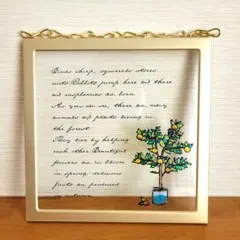 Birds chirp, squirrels stores
nuts Rabbits jump here and there
and raspberries are born
As you can see, there are many
animals and plants living in
the forest
They live by helping
each other Beautiful
flowers are in bloom
in spring, delicious
fruits are produced
in autumn